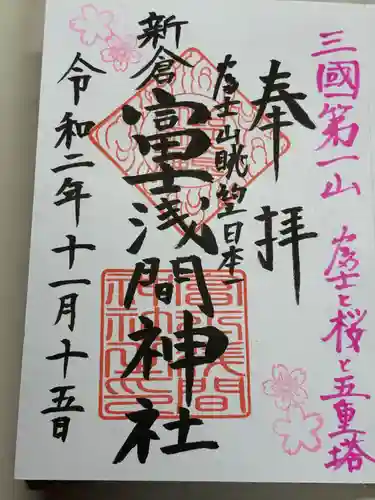 三國第一山
富士と桜と五重塔
奉拝
富士山眺望日本一
新倉
富士浅間神社
令和二年十一月十五日